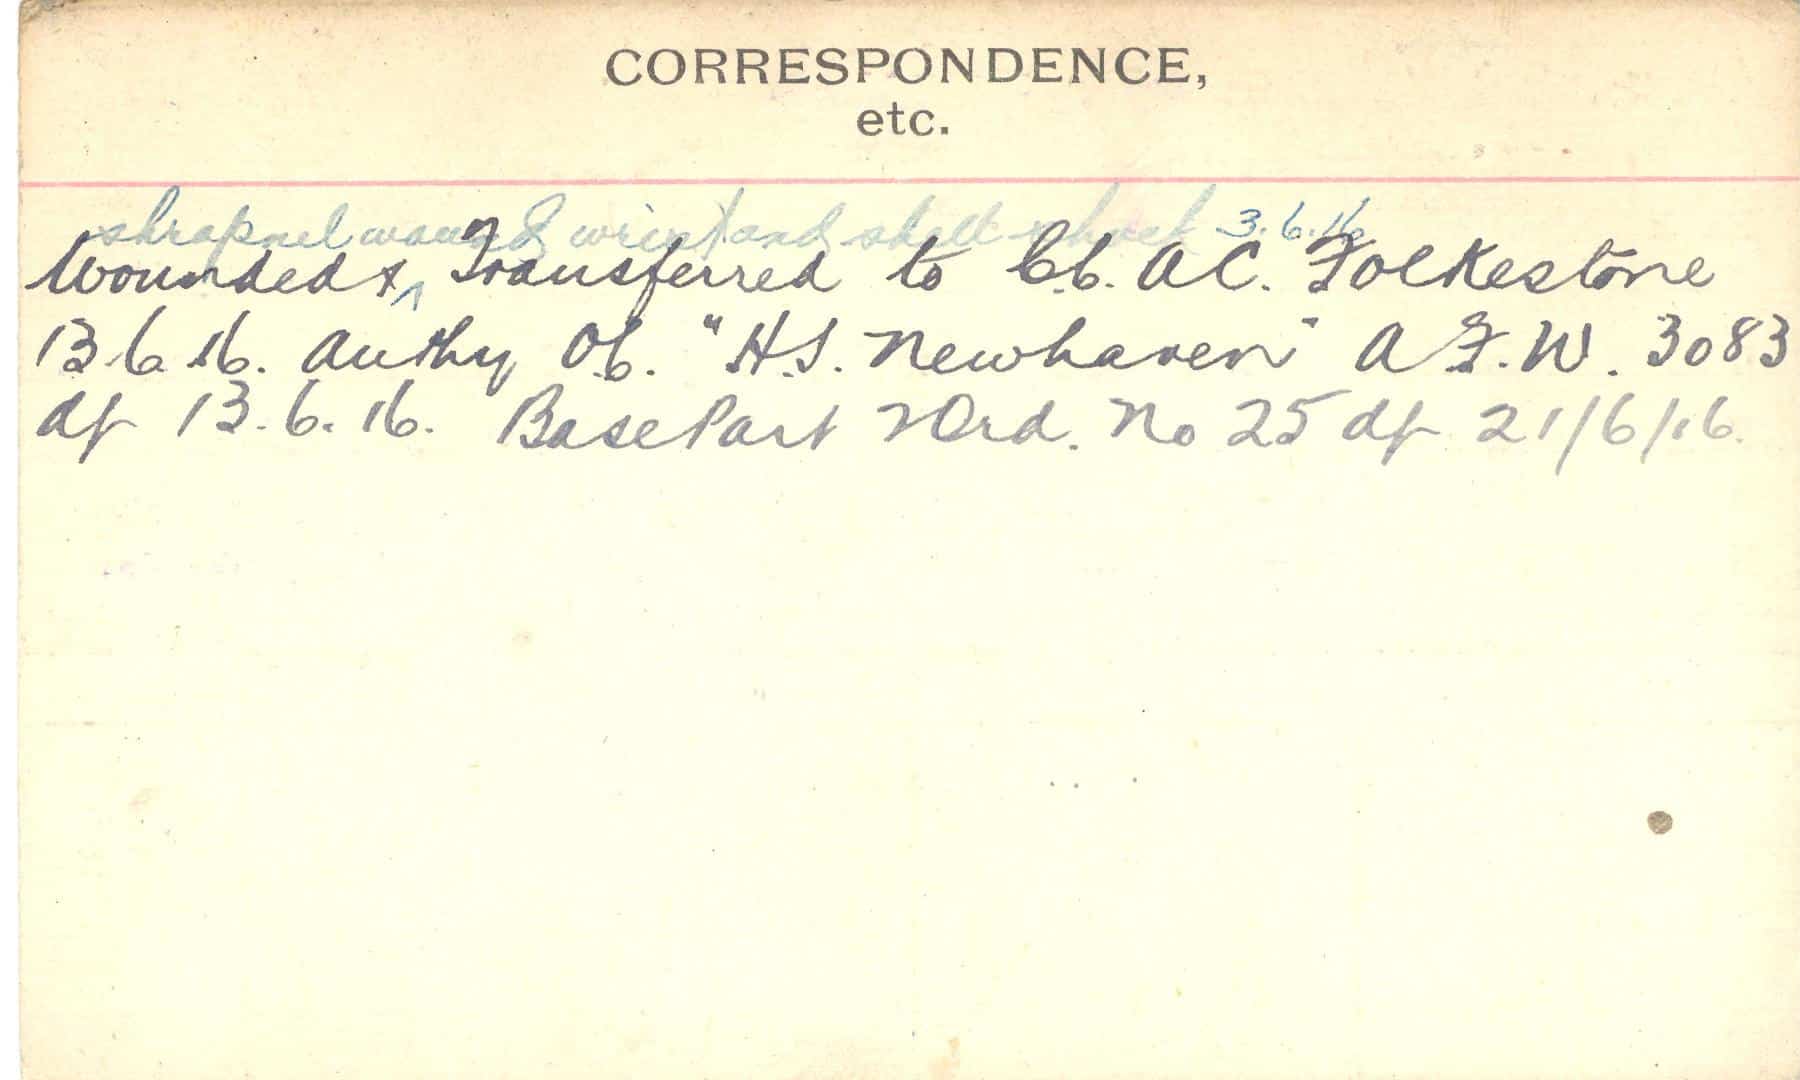 CORRESPONDENCE,
etc.
shrapnel wound wrist and shell shock 3.6.16
Wounded & ^ Transferred to C.C. A C. Folkestone
13.6.16. Authy O.C. "H.S. Newhaven" A.F.W. 3083
df 13.6.16. Base Part 2 Ord. No 25 df 21/6/16.